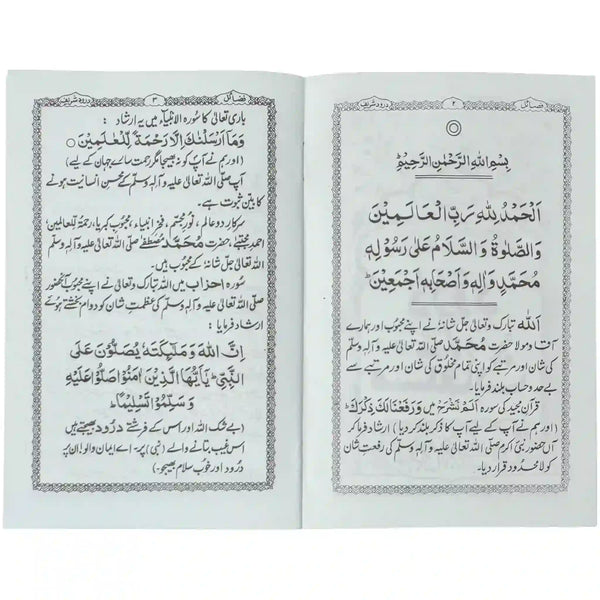 فضائل
۲
درود شریف
بِسْمِ اللهِ الرَّحْمٰنِ الرَّحِيْمِ ط
اَلْحَمْدُ لِلّٰهِ رَبِّ الْعَالَمِيْنَ
وَالصَّلٰوةُ وَالسَّلَامُ عَلٰى رَسُوْلِهٖ
مُحَمَّدٍ وَّاٰلِهٖ وَاَصْحَابِهٖ اَجْمَعِيْنَ ط
اللہ تبارک وتعالیٰ جل شانہٗ نے اپنے محبوب اور ہمارے
آقا ومولا حضرت محمد صلی اللہ تعالیٰ علیہ وآلہٖ وسلم
کی شان اور مرتبے کو اپنی تمام مخلوق کی شان اور مرتبے سے
بے حد وحساب بلند فرمایا۔
قرآن مجید کی سورہ اَلَمْ نَشْرَحْ میں وَرَفَعْنَالَكَ ذِكْرَكَ ط
(اور ہم نے آپ کے لیے آپ کا ذکر بلند کر دیا) ارشاد فرما کر
آں حضور نبی اکرم صلی اللہ تعالیٰ علیہ وآلہٖ وسلم کی رفعتِ شان
کو لا محدود قرار دیا۔
فضائل
۳
درود شریف
باری تعالیٰ کا سورہ الانبیآء میں یہ ارشاد :
وَمَآ اَرْسَلْنٰكَ اِلَّا رَحْمَةً لِّلْعٰلَمِيْنَ ○
(اور ہم نے آپ کو نہ بھیجا مگر رحمت سارے جہان کے لیے)
آپ صلی اللہ تعالیٰ علیہ وآلہٖ وسلم کے محسنِ انسانیت ہونے
کا بیّن ثبوت ہے۔
سرکار دو عالم، نورِ مجسّم، فخرِ انبیاء، محبوبِ کبریا، رحمۃ للعالمین،
احمد مجتبیٰ، حضرت محمد مصطفےٰ صلی اللہ تعالیٰ علیہ وآلہٖ وسلم
اللہ تعالیٰ جل شانہٗ کے محبوب ہیں۔
سورہ احزاب میں اللہ تبارک وتعالیٰ نے اپنے محبوب آنحضور
صلی اللہ تعالیٰ علیہ وآلہٖ وسلم کی عظمتِ شان کو دوام بخشتے ہوئے
ارشاد فرمایا :
اِنَّ اللهَ وَمَلٰٓئِكَتَهٗ يُصَلُّوْنَ عَلَى
النَّبِيِّ ط يٰٓاَيُّهَا الَّذِيْنَ اٰمَنُوْا صَلُّوْا عَلَيْهِ
وَسَلِّمُوْا تَسْلِيْمًا ط
(بے شک اللہ اور اس کے فرشتے درود بھیجتے ہیں
اس غیب بتانے والے (نبی) پر۔ اے ایمان والو! ان پر
درود اور خوب سلام بھیجو۔)